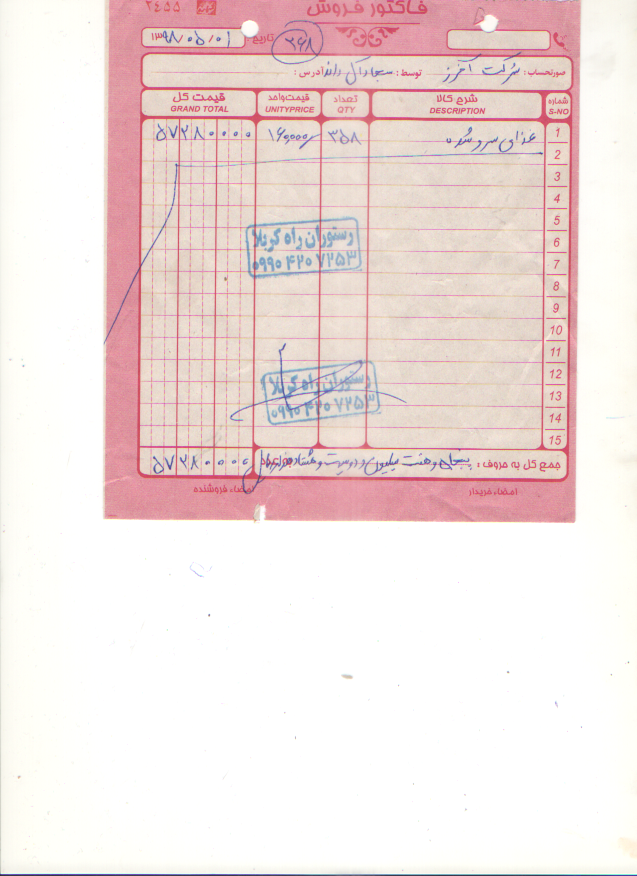 ۲۴۵۵
فاکتور فروش
تاریخ: ۱۳۹۸/۰۵/۰۱
۳۶۸
صورتحساب: شرکت توسط: آدرس:
شماره S-NO
شرح کالا DESCRIPTION
تعداد QTY
قیمت واحد UNITYPRICE
قیمت کل GRAND TOTAL
1 غذای سرو شده ۳۵۸ ۱۶۰۰۰۰ ۵۷۲۸۰۰۰۰
2
3
4
5
6
7
8
9
10
11
12
13
14
15
رستوران راه کربلا
۰۹۹۰ ۴۲۰ ۷۲۵۳
رستوران راه کربلا
۰۹۹۰ ۴۲۰ ۷۲۵۳
جمع کل به حروف: پنجاه و هفت میلیون و دویست و هشتاد هزار ریال ۵۷۲۸۰۰۰۰
امضاء خریدار
امضاء فروشنده